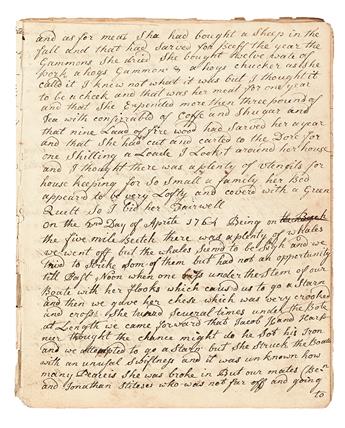 and as for meat Sha had bought a Sheep in the
fall and that had Sarved for Beeff the year the
Gammons She dried She bought twelve wate of
pork a hogs Gammon & a hogs chucker as she
calld it I knew not what it was but I thought it
to be a cheek and that was her meat for one year
and that She Expended more then three pound of
Tea with considrable of Coffe and Shuger and
that nine Load of fire wood had Sarved her a year
and that She had cut and carted to the Dore for
one Shilling a Loade I Lookt around her house
and I thought there was a plenty of Utensils for
house keeping for So Small a family her Bed
appeared to be very Lofty and coverd with a Green
Quilt So I bid her Fairwell
On the 2nd Day of Aprile 1764 Being on the Beach
the five mile Beetch there was a plenty of whales
we went off but the whales Siemd to be Shyh and we
tried to Strike Som of them but had not an opportunity
till Past Noon when one was under the Stem of our
Boate with her flooks which caused us to go a Starn
and then we gave her chese which was very crooked
and cross She turned Several times under the Bote
at Length we came forward that Jacob Hand Harp-
nner thought the chance might do he Sot his Iron
and we attempted to go a Starn but She Struck the Boate
with an unusal Swiftness and it was unknown how
many Peaceis She was broke in But our mates (Ben
and Jonathan Stiteses who was not far off and going
to